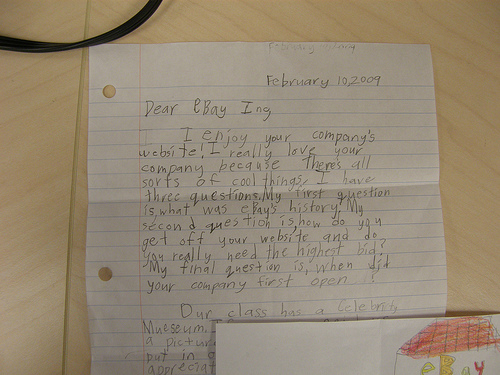 February
February 10,2009
Dear eBay Ing
I enjoy your company's
website! I really love your
company because theres all
sorts of cool things. I have
three questions. My first question
is, what was eBay's history. My
second question is, how do you
get off your website and do
you really need the highest bid?
My final question is, when did
your company first open !?
Our class has a Celebrity
Mueseum.
a pictur
put in
appreciat
eBay